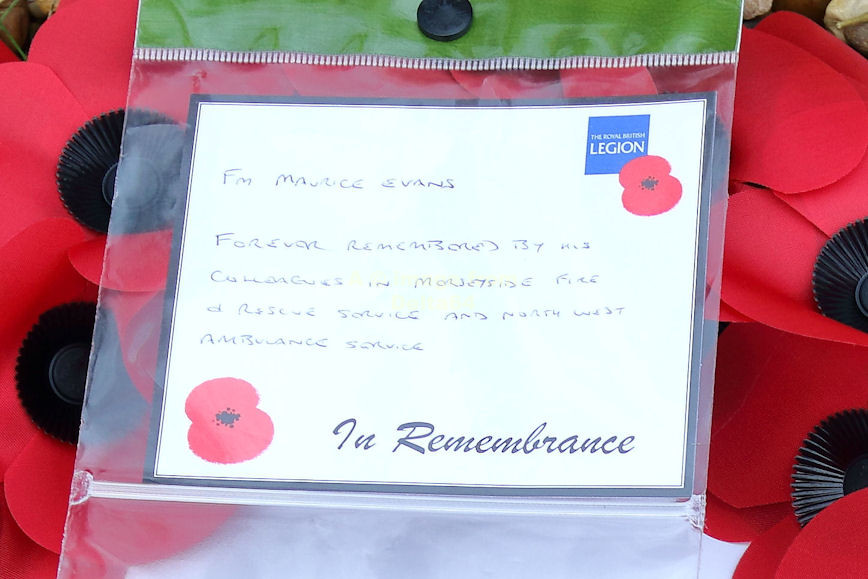 THE ROYAL BRITISH
LEGION
FM MAURICE EVANS
FOREVOR REMEMBORED BY HIS
COLLEAGUES IN MORSEYSIDE FIRE
& RESCUE SERVICE AND NORTH WEST
AMBULANCE SERVICE
In Remembrance